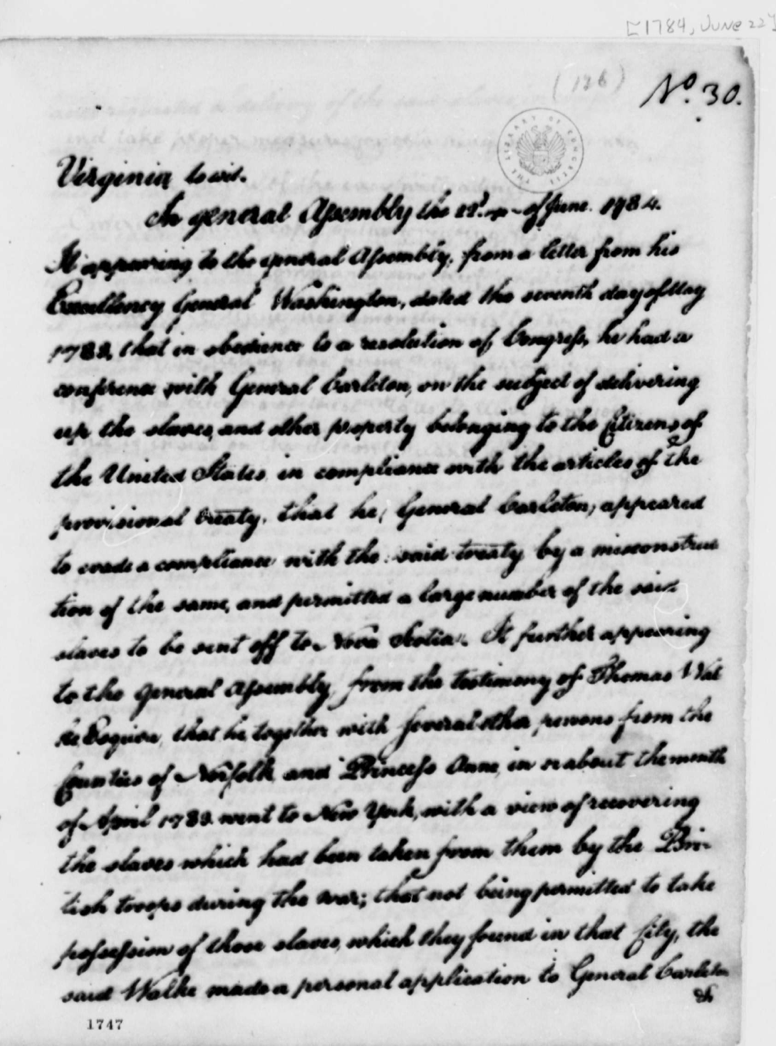 [1784, JUNE 22]
(126)
No. 30.
Virginia to wit.
In general Assembly the 22d. of June 1784.
It appearing to the general Assembly, from a letter from his
Excellency General Washington, dated the seventh day of May
1783, that in obedience to a resolution of Congress, he had a
conference with General Carleton, on the subject of delivering
up the slaves, and other property belonging to the Citizens of
the United States, in compliance with the articles of the
provisional treaty, that he, General Carleton, appeared
to evade a compliance with the said treaty by a misconstruc
tion of the same, and permitted a large number of the said
slaves to be sent off to Nova Scotia. It further appearing
to the general Assembly from the testimony of Thomas Wal
ke Esquire, that he together with several other persons from the
Counties of Norfolk and Princess Anne, in or about the month
of April 1783 went to New York, with a view of recovering
the slaves which had been taken from them by the Bri-
tish troops during the war; that not being permitted to take
possession of those slaves, which they found in that City, the
said Walke made a personal application to General Carleton
1747